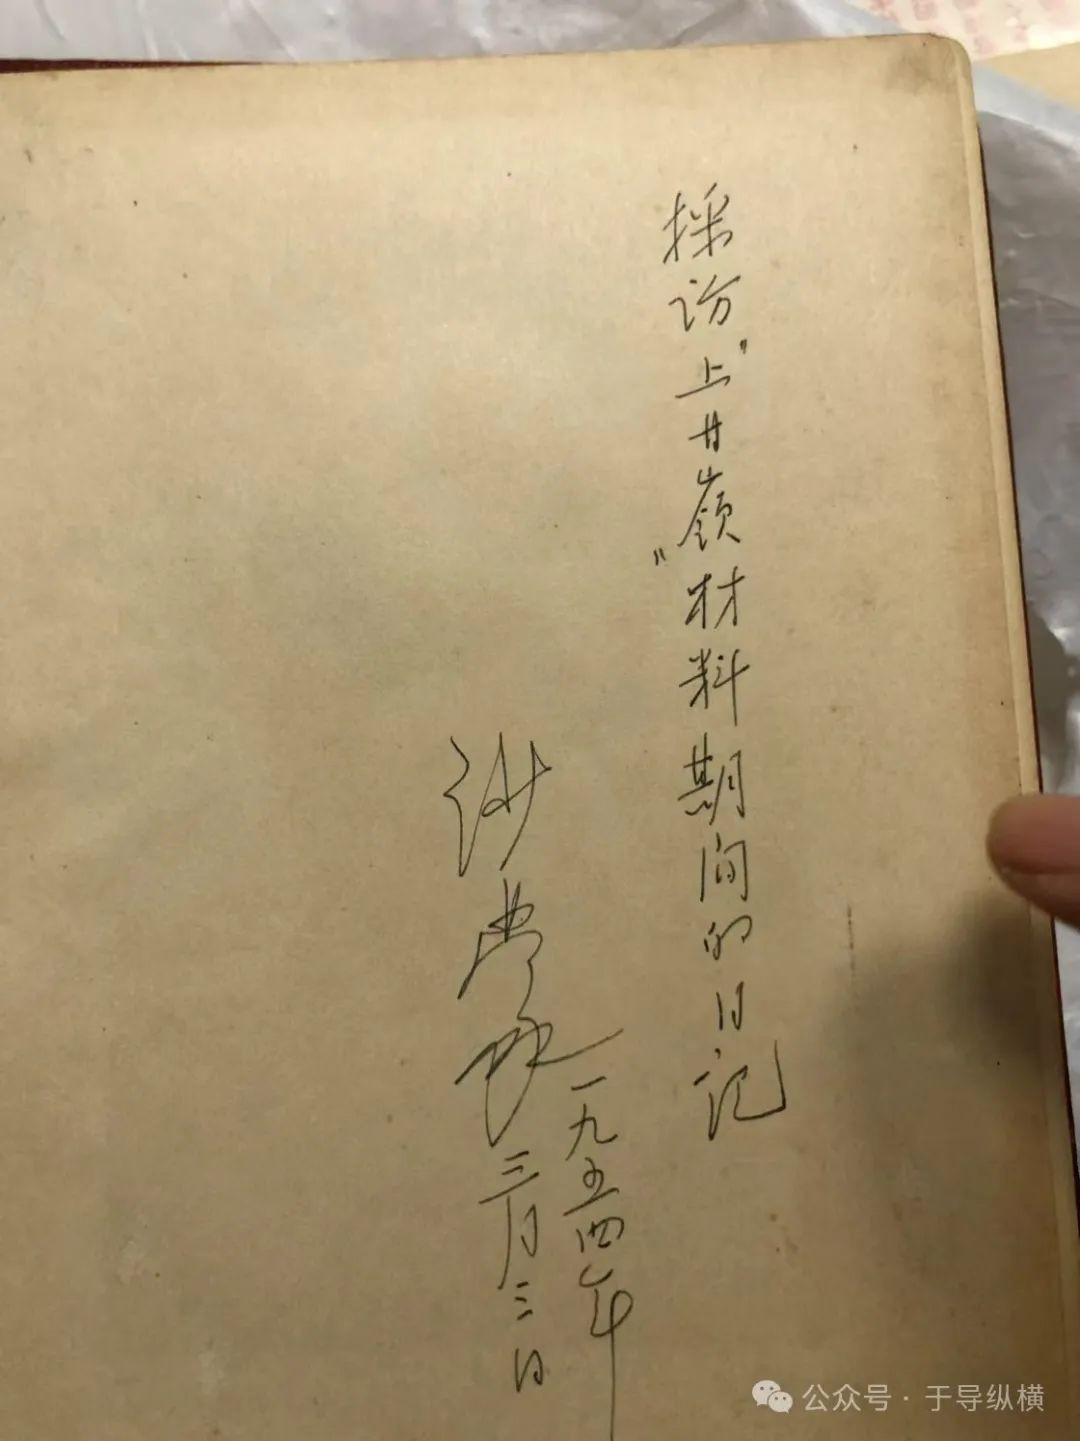 採访"上甘嶺"材料期间的日记
一九五四年
三月三日
公众号·于导纵横